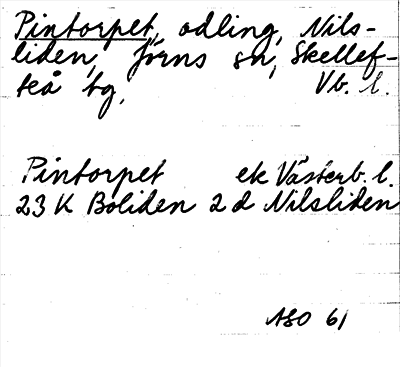 Pintorpet, odling, Nils-
liden, Jörns sn, Skellef-
teå tg, Vb. l.
Pintorpet ek Västerb. l.
23 K Boliden 2 d Nilsliden
ASO 61